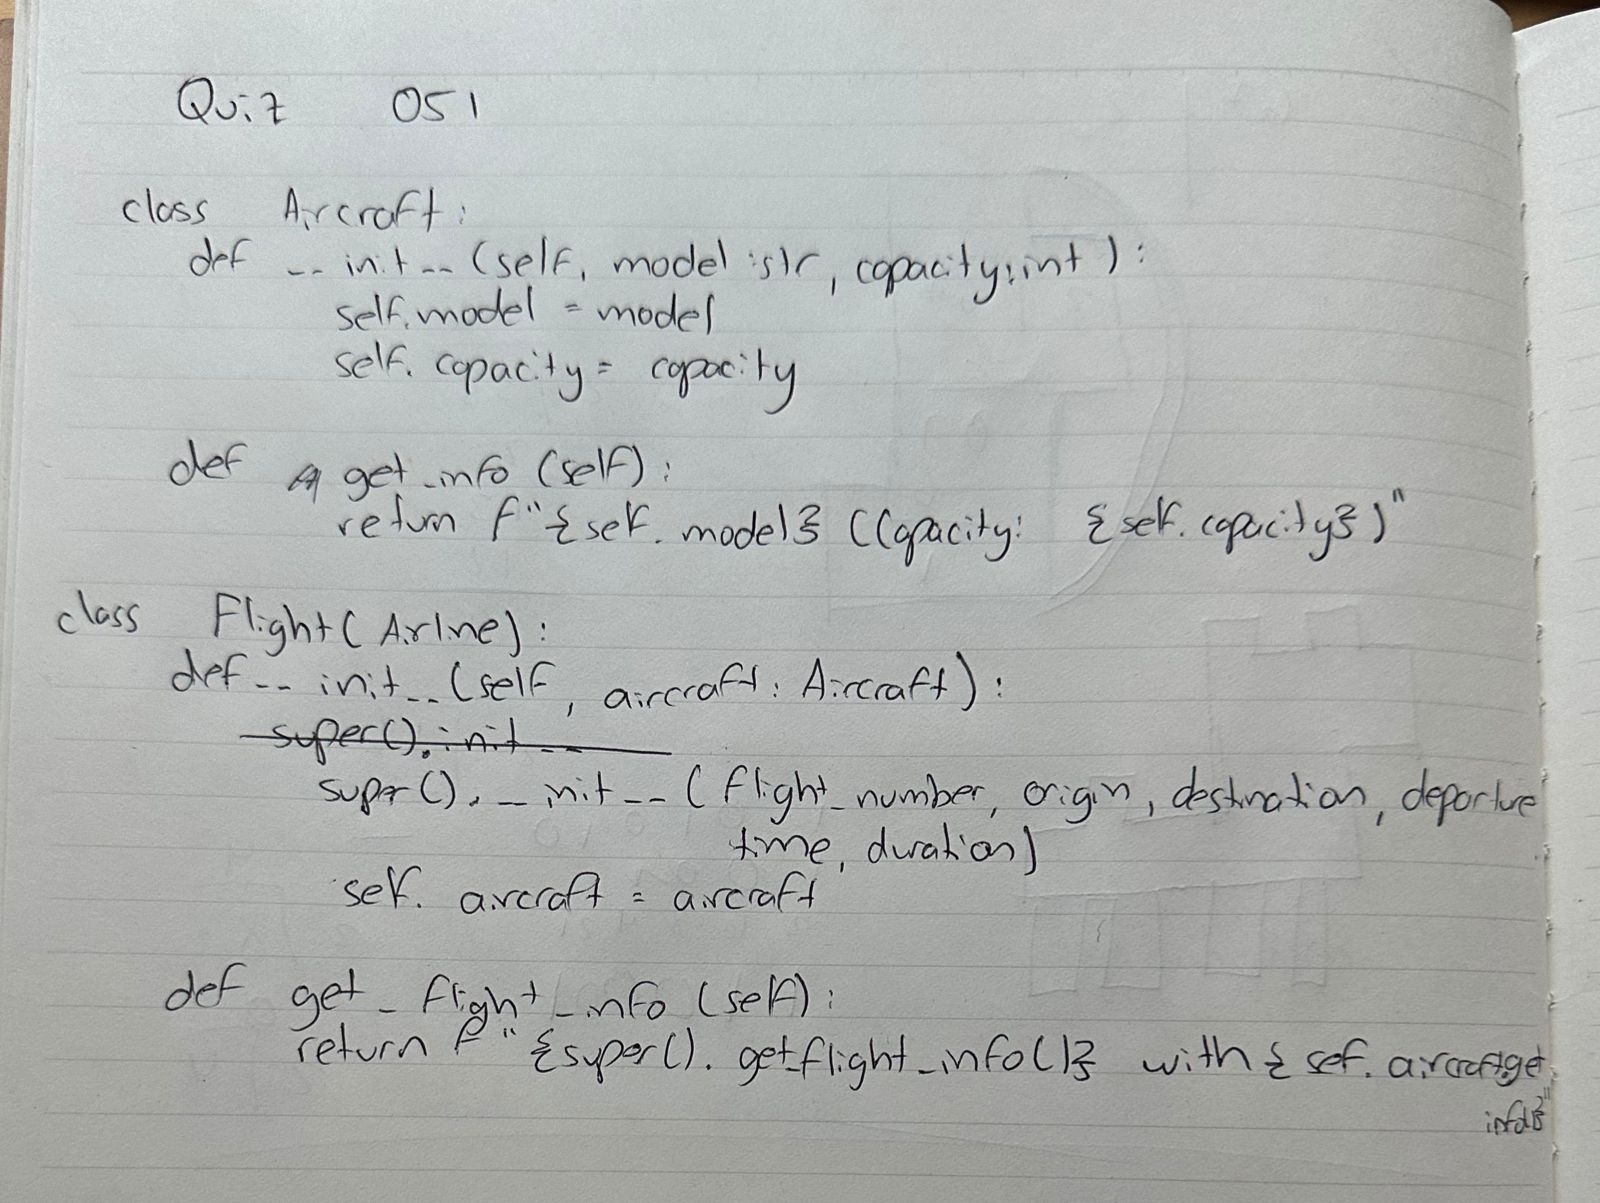 Quiz 051
class Aircraft:
def __init__(self, model:str, capacity:int):
self.model = model
self.capacity = capacity
def get_info (self):
return f"{self.model} (Capacity: {self.capacity})"
class Flight(Airline):
def __init__(self, aircraft: Aircraft):
super().init__
super().__init__(flight_number, origin, destination, departure
time, duration)
self.aircraft = aircraft
def get_flight_info (self):
return f"{super().get_flight_info()} with {self.aircraft.get
info}"